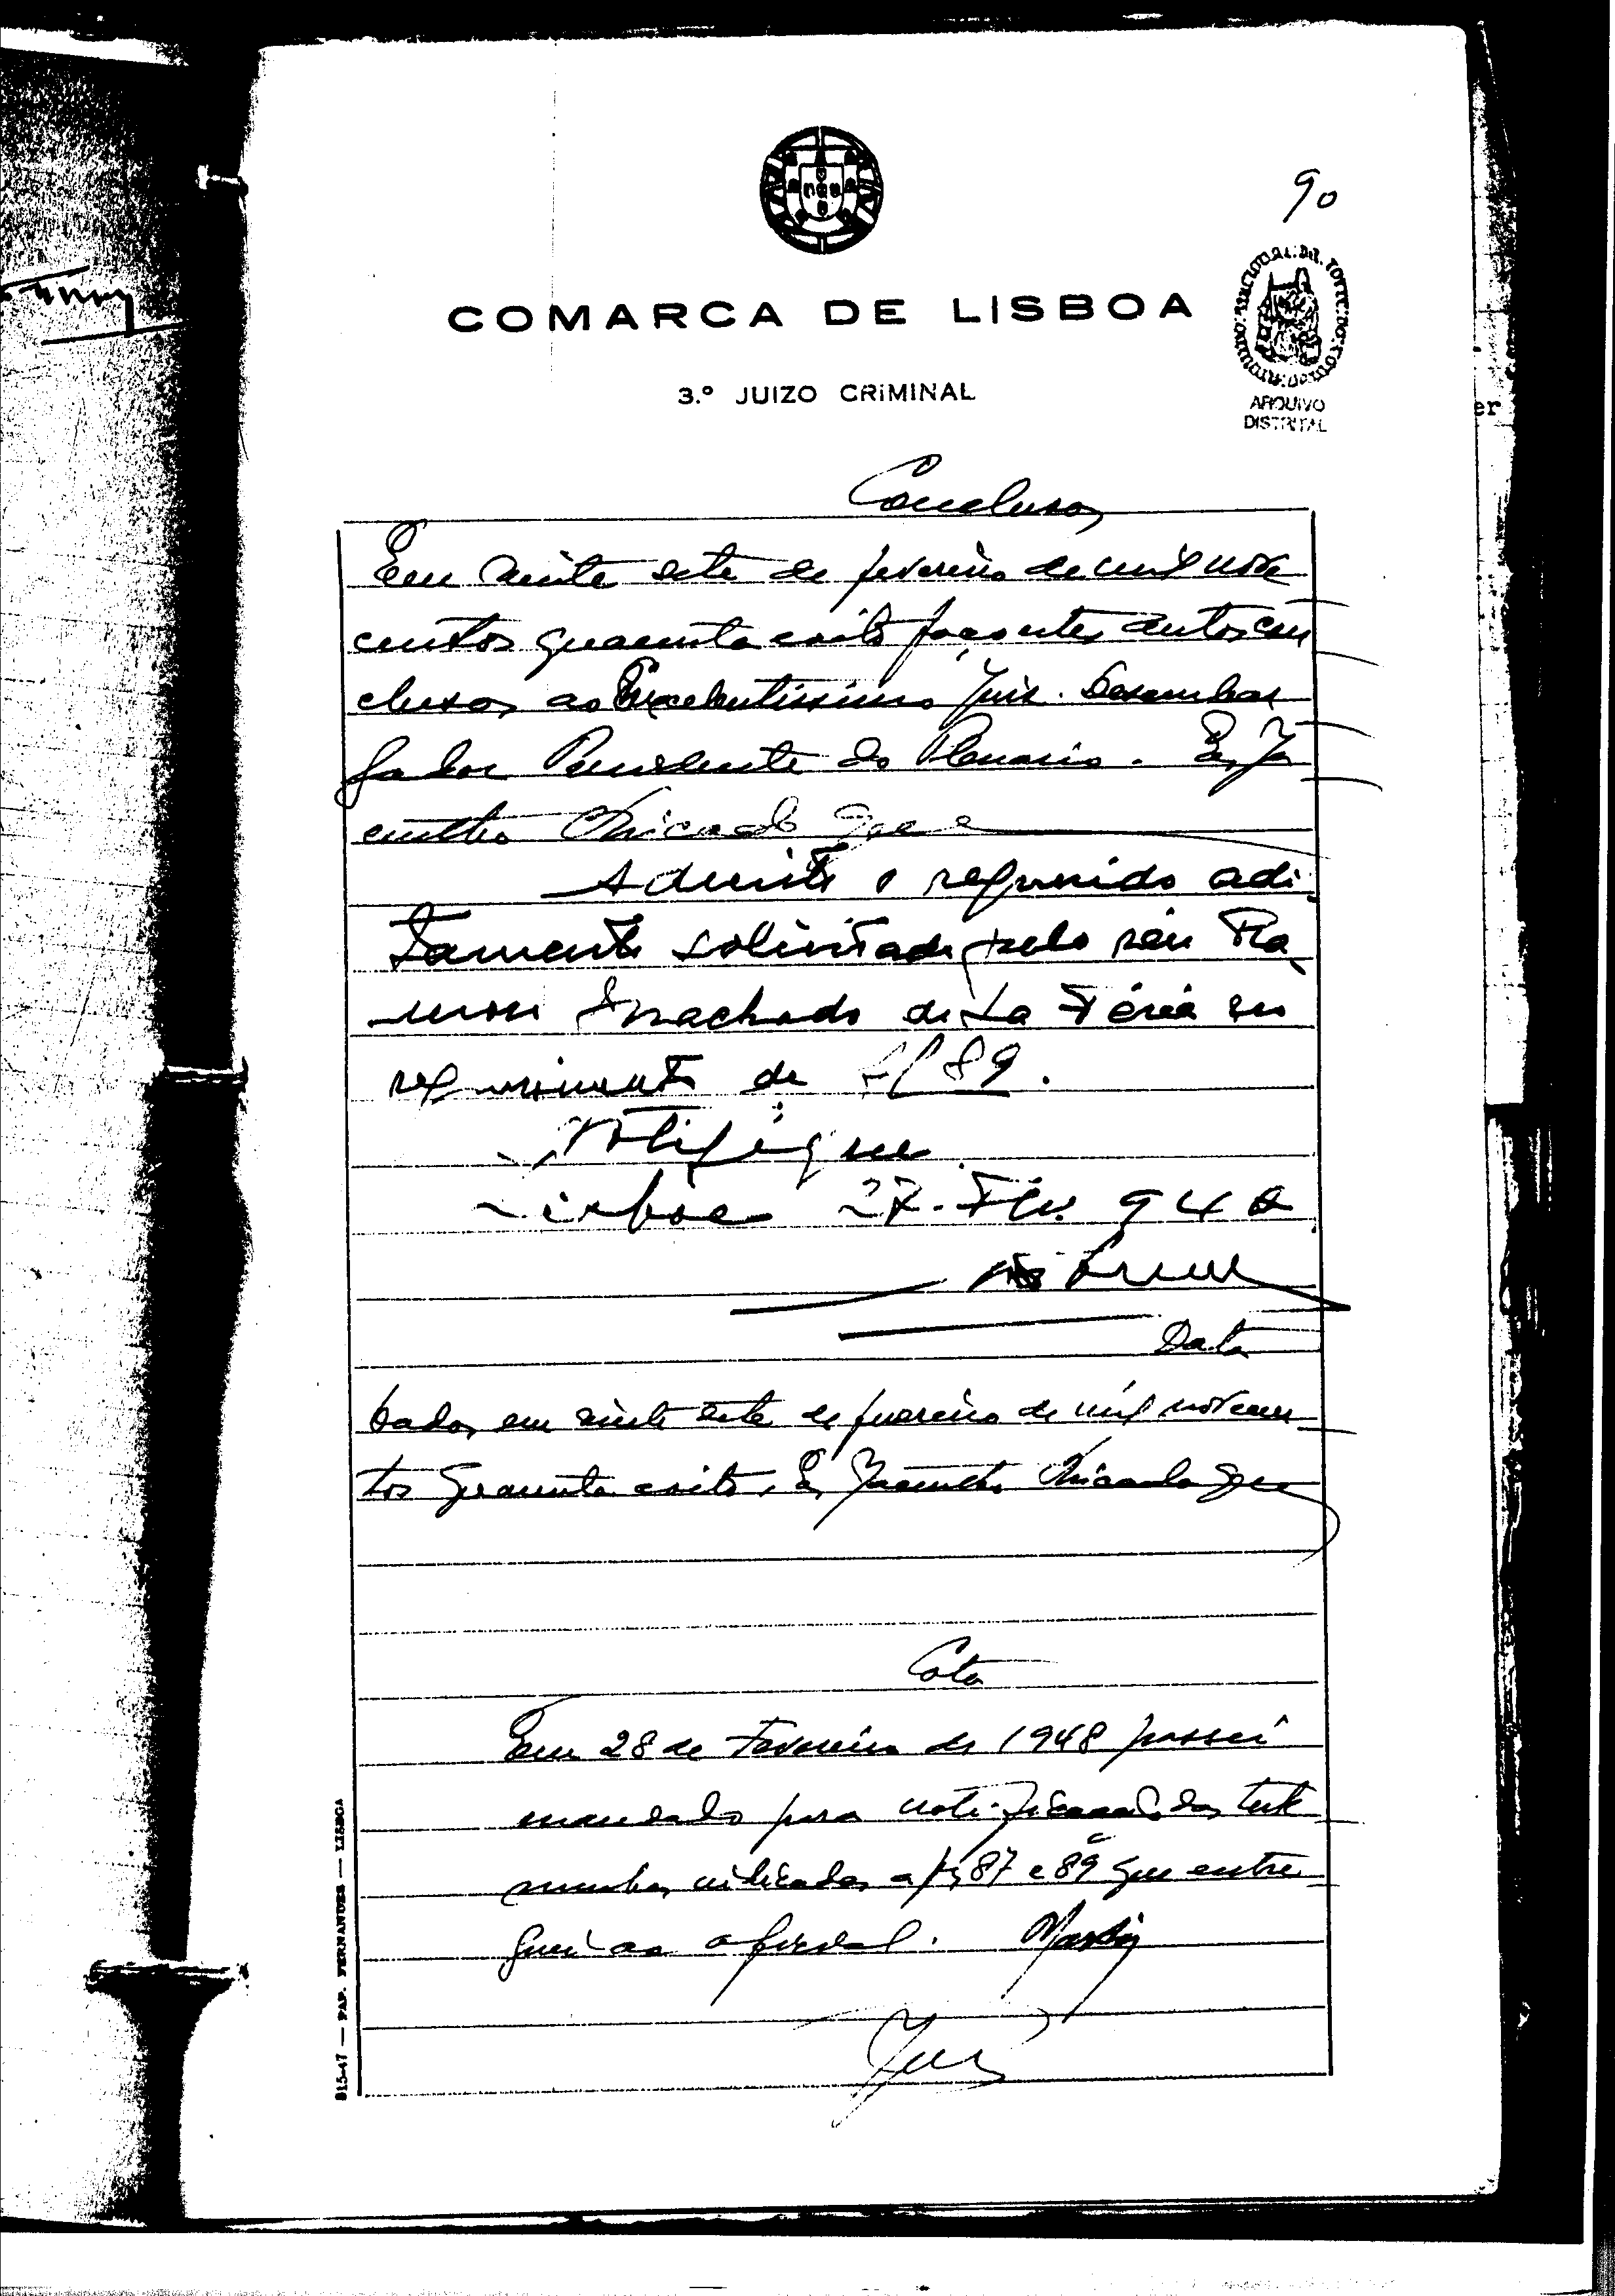 90
COMARCA DE LISBOA
3.º JUIZO CRIMINAL
ARQUIVO NACIONAL DA TORRE DO TOMBO
ARQUIVO
DISTRITAL
er
Conclusos
Em vinte sete de fevereiro de mil nove
centos quarenta e oito faço estes autos con
clusos ao Excelentissimo Juiz Desembar
gador Presidente do Plenario. Eu, Ja
cintho
Admito o requerido adi
tamento solicitado pelo réu Ra
mon Machado de La Féria em
requerimento de fl 89.
Notifique
Lisboa 27. Fev. 948
Data
Dados em vinte sete de fevereiro de mil novecen
tos quarenta e oito. Eu, Jacintho
Cota
Em 28 de Fevereiro de 1948 passei
mandado para notificação das teste
munhas indicadas a fls 87 e 89 que entre
guei ao oficial. Martins
815-47 — PAP. FERNANDES — LISBOA